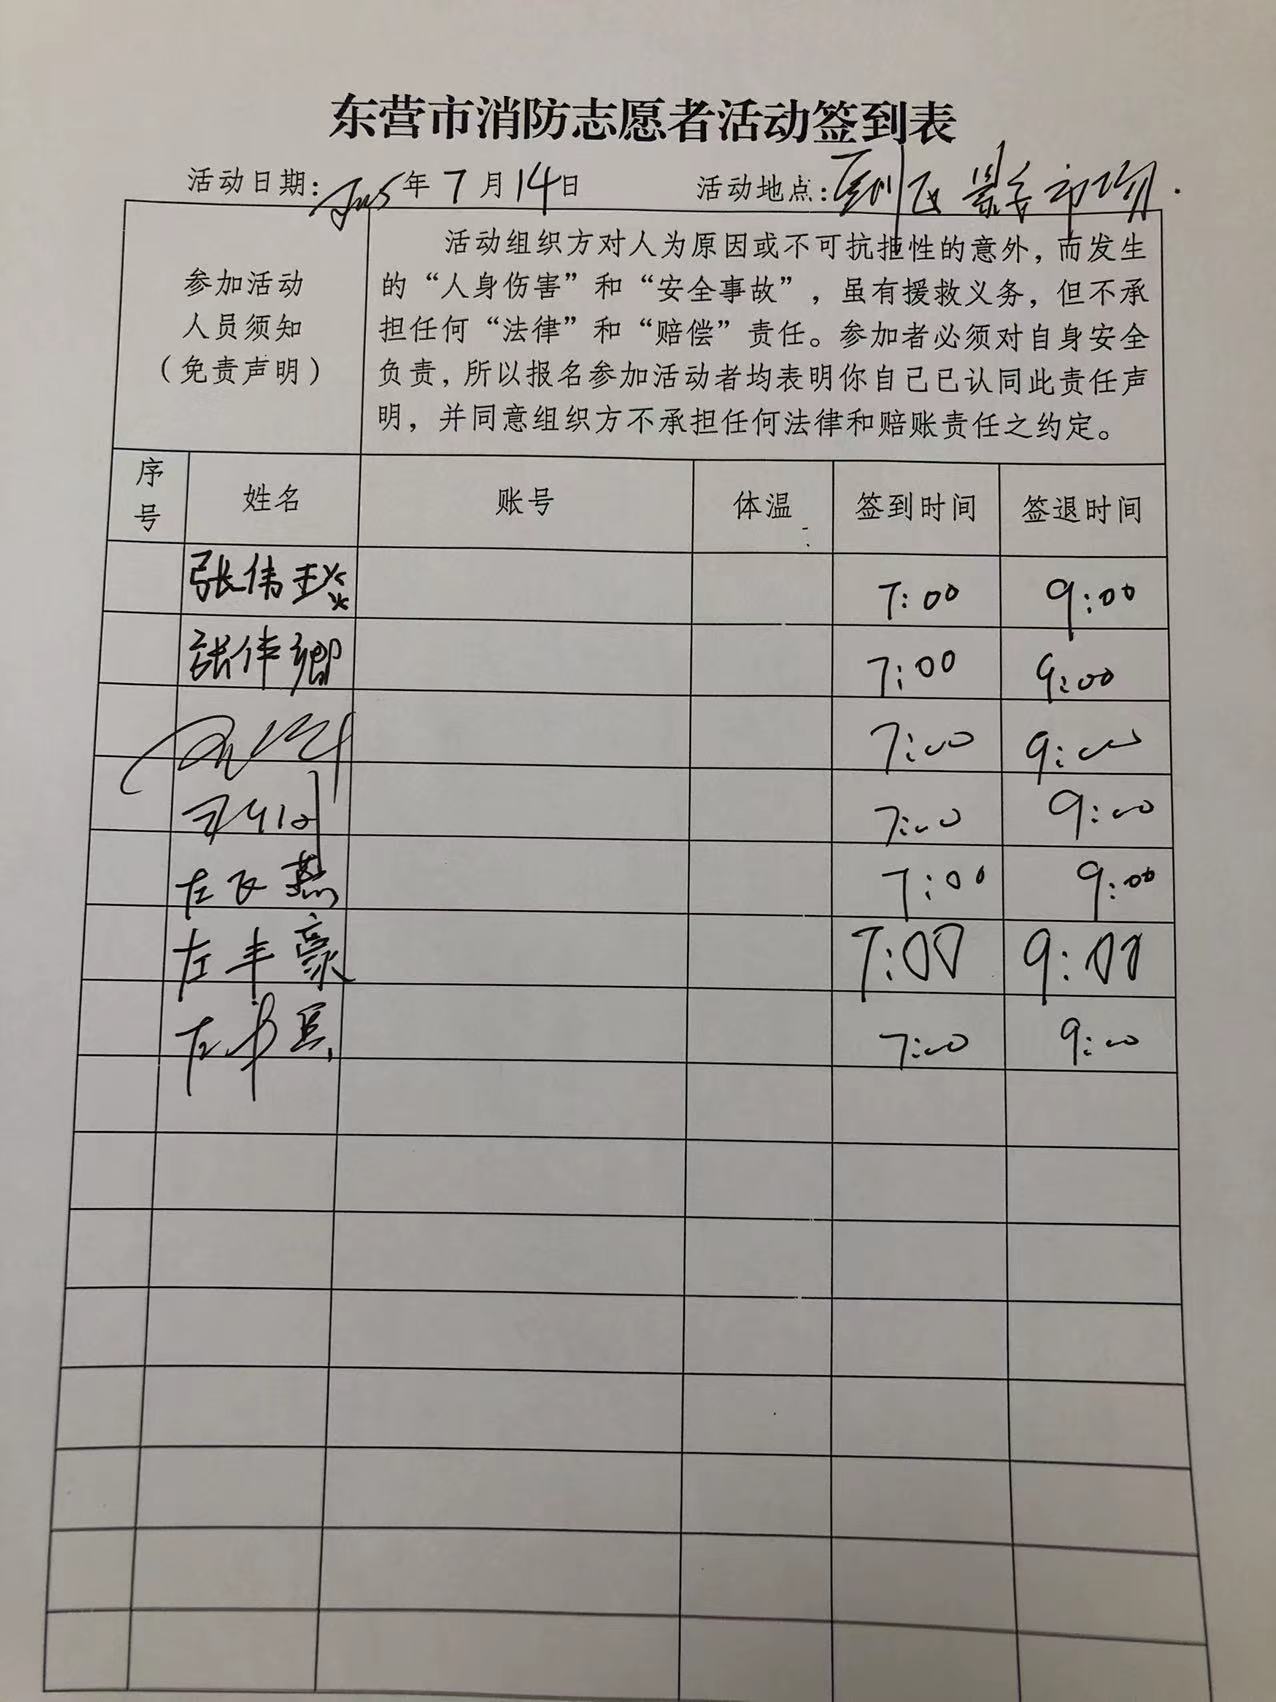 东营市消防志愿者活动签到表
活动日期: 年7月14日 活动地点:
参加活动
人员须知
(免责声明)
活动组织方对人为原因或不可抗拒性的意外，而发生
的“人身伤害”和“安全事故”，虽有援救义务，但不承
担任何“法律”和“赔偿”责任。参加者必须对自身安全
负责，所以报名参加活动者均表明你自己已认同此责任声
明，并同意组织方不承担任何法律和赔账责任之约定。
序号 姓名 账号 体温 签到时间 签退时间
张伟 7:00 9:00
张伟卿 7:00 9:00
7:00 9:00
7:00 9:00
左飞燕 7:00 9:00
左丰豪 7:00 9:00
左 7:00 9:00